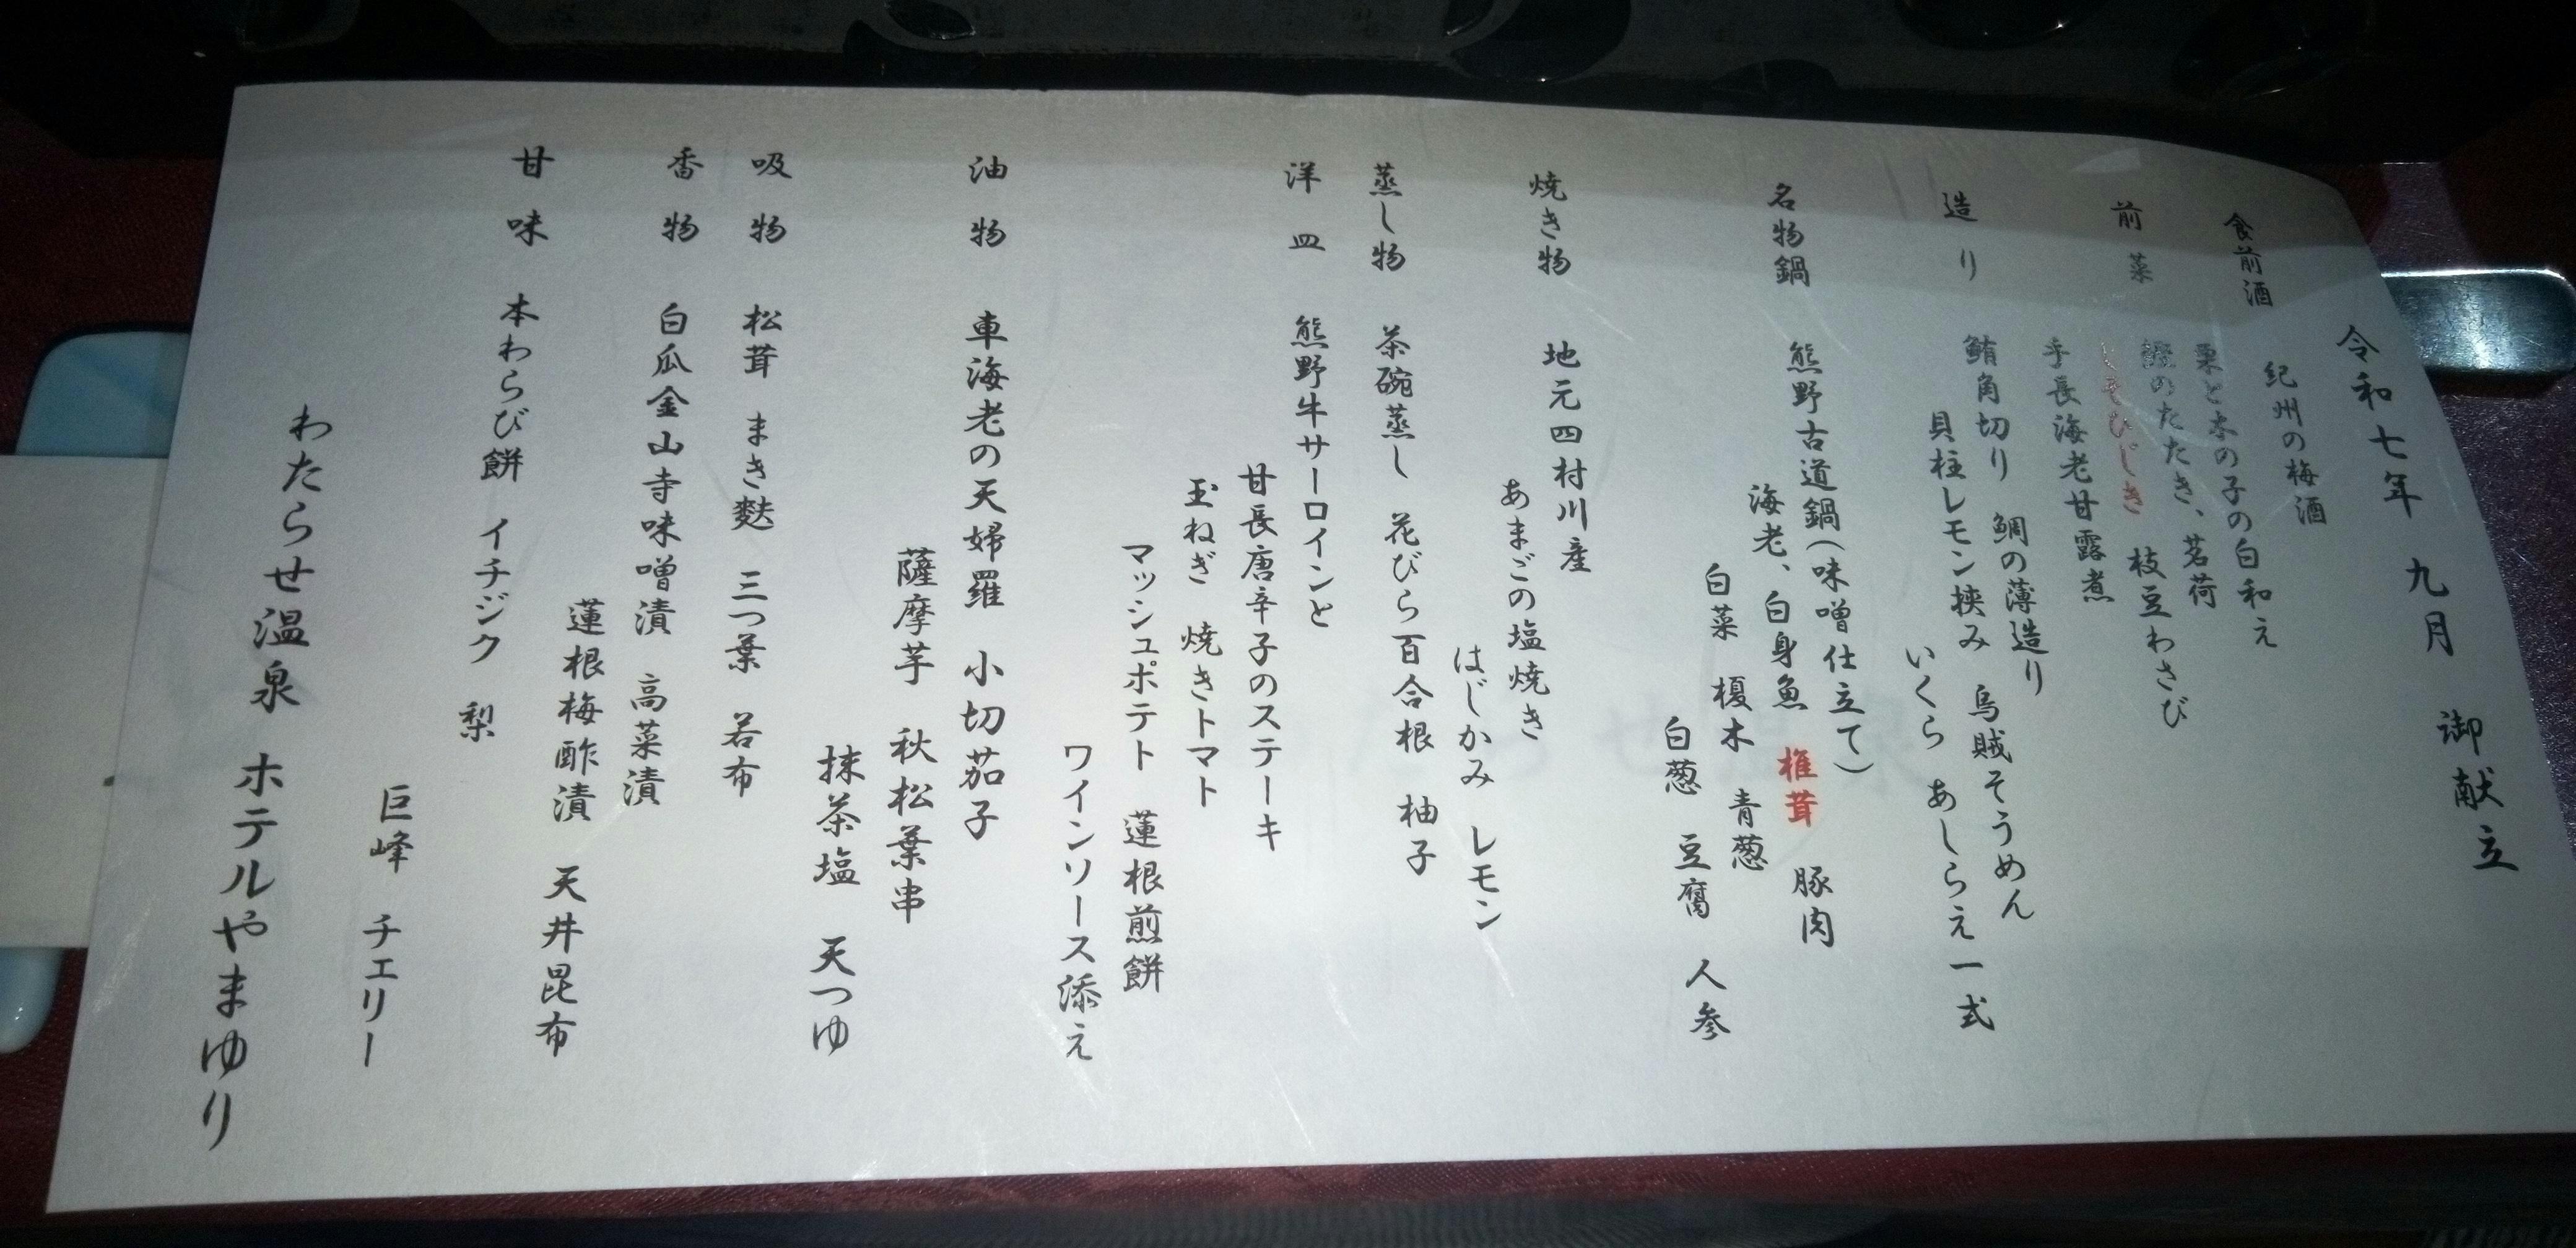 令和七年 九月 御献立
食前酒 紀州の梅酒
前菜 栗と木の子の白和え
鰹のたたき、茗荷
しそひじき 枝豆わさび
手長海老甘露煮
造り 鮪角切り 鯛の薄造り 烏賊そうめん
貝柱レモン挟み いくら あしらえ一式
名物鍋 熊野古道鍋(味噌仕立て)
海老、白身魚 椎茸 豚肉
白菜 榎木 青葱
白葱 豆腐 人参
焼き物 地元四村川産
あまごの塩焼き
はじかみ レモン
蒸し物 茶碗蒸し 花びら百合根 柚子
洋皿 熊野牛サーロインと
甘長唐辛子のステーキ
玉ねぎ 焼きトマト
マッシュポテト 蓮根煎餅
ワインソース添え
油物 車海老の天婦羅 小切茄子
薩摩芋 秋松葉串
抹茶塩 天つゆ
吸物 松茸 まき麩 三つ葉 若布
香物 白瓜金山寺味噌漬 高菜漬
蓮根梅酢漬 天井昆布
甘味 本わらび餅 イチジク 梨
巨峰 チェリー
わたらせ温泉 ホテルやまゆり